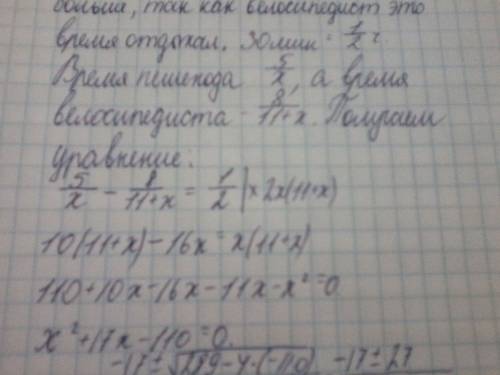 больша, так как велосипедист это
время отдыхал. 30 мин = 1/2 ч
Время пешехода 5/x, а время
велосипедиста - 8/11+x. Получаем
уравнение:
5/x - 8/11+x = 1/2 | × 2x(11+x)
10(11+x)-16x=x(11+x)
110+10x-16x-11x-x²=0
x²+17x-110=0
-17±√289-4·(-110) -17±27